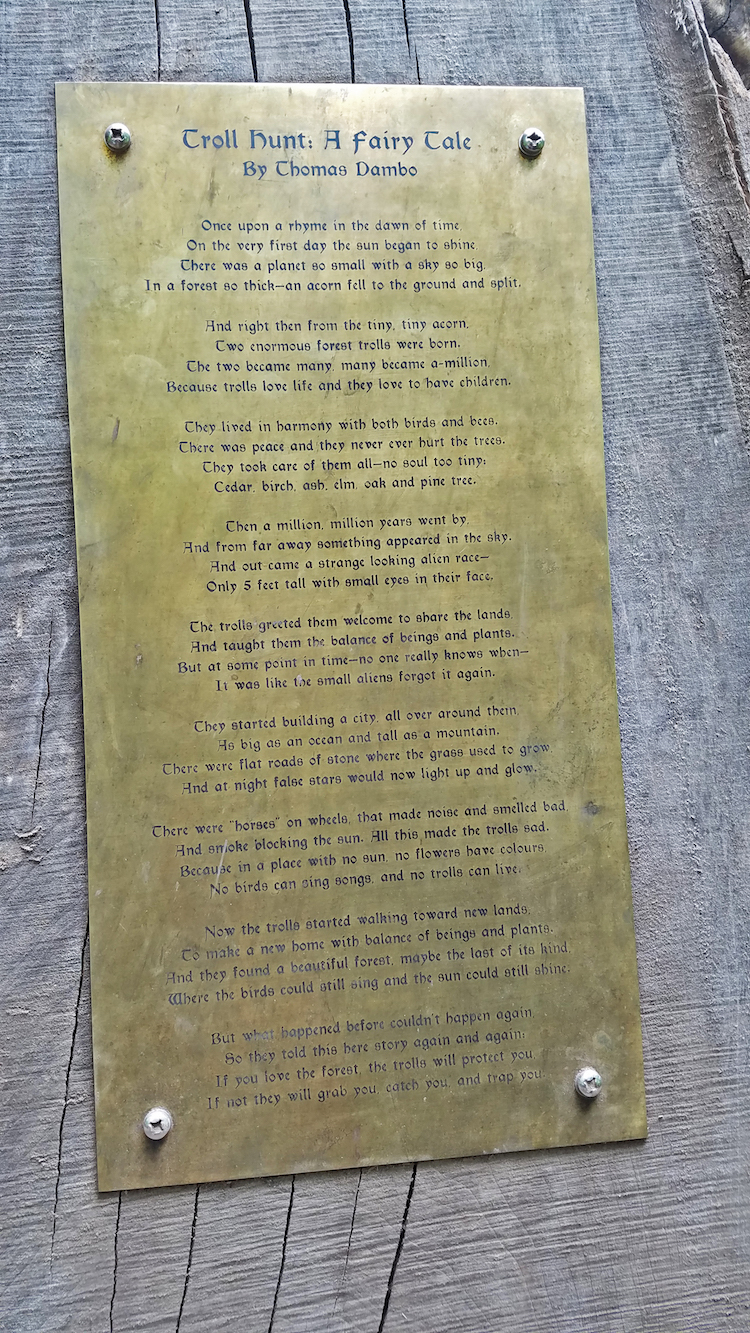 Troll Hunt: A Fairy Tale
By Thomas Dambo
Once upon a rhyme in the dawn of time,
On the very first day the sun began to shine,
There was a planet so small with a sky so big,
In a forest so thick—an acorn fell to the ground and split.
And right then from the tiny, tiny acorn,
Two enormous forest trolls were born.
The two became many, many became a-million,
Because trolls love life and they love to have children.
They lived in harmony with both birds and bees.
There was peace and they never ever hurt the trees.
They took care of them all—no soul too tiny:
Cedar, birch, ash, elm, oak and pine tree.
Then a million, million years went by,
And from far away something appeared in the sky.
And out came a strange looking alien race—
Only 5 feet tall with small eyes in their face.
The trolls greeted them welcome to share the lands,
And taught them the balance of beings and plants.
But at some point in time—no one really knows when—
It was like the small aliens forgot it again.
They started building a city, all over around them,
As big as an ocean and tall as a mountain.
There were flat roads of stone where the grass used to grow
And at night false stars would now light up and glow.
There were "horses" on wheels, that made noise and smelled bad,
And smoke blocking the sun. All this made the trolls sad.
Because in a place with no sun, no flowers have colours,
No birds can sing songs, and no trolls can live.
Now the trolls started walking toward new lands,
To make a new home with balance of beings and plants.
And they found a beautiful forest, maybe the last of its kind,
Where the birds could still sing and the sun could still shine.
But what happened before couldn't happen again,
So they told this here story again and again:
If you love the forest, the trolls will protect you
If not they will grab you, catch you, and trap you.